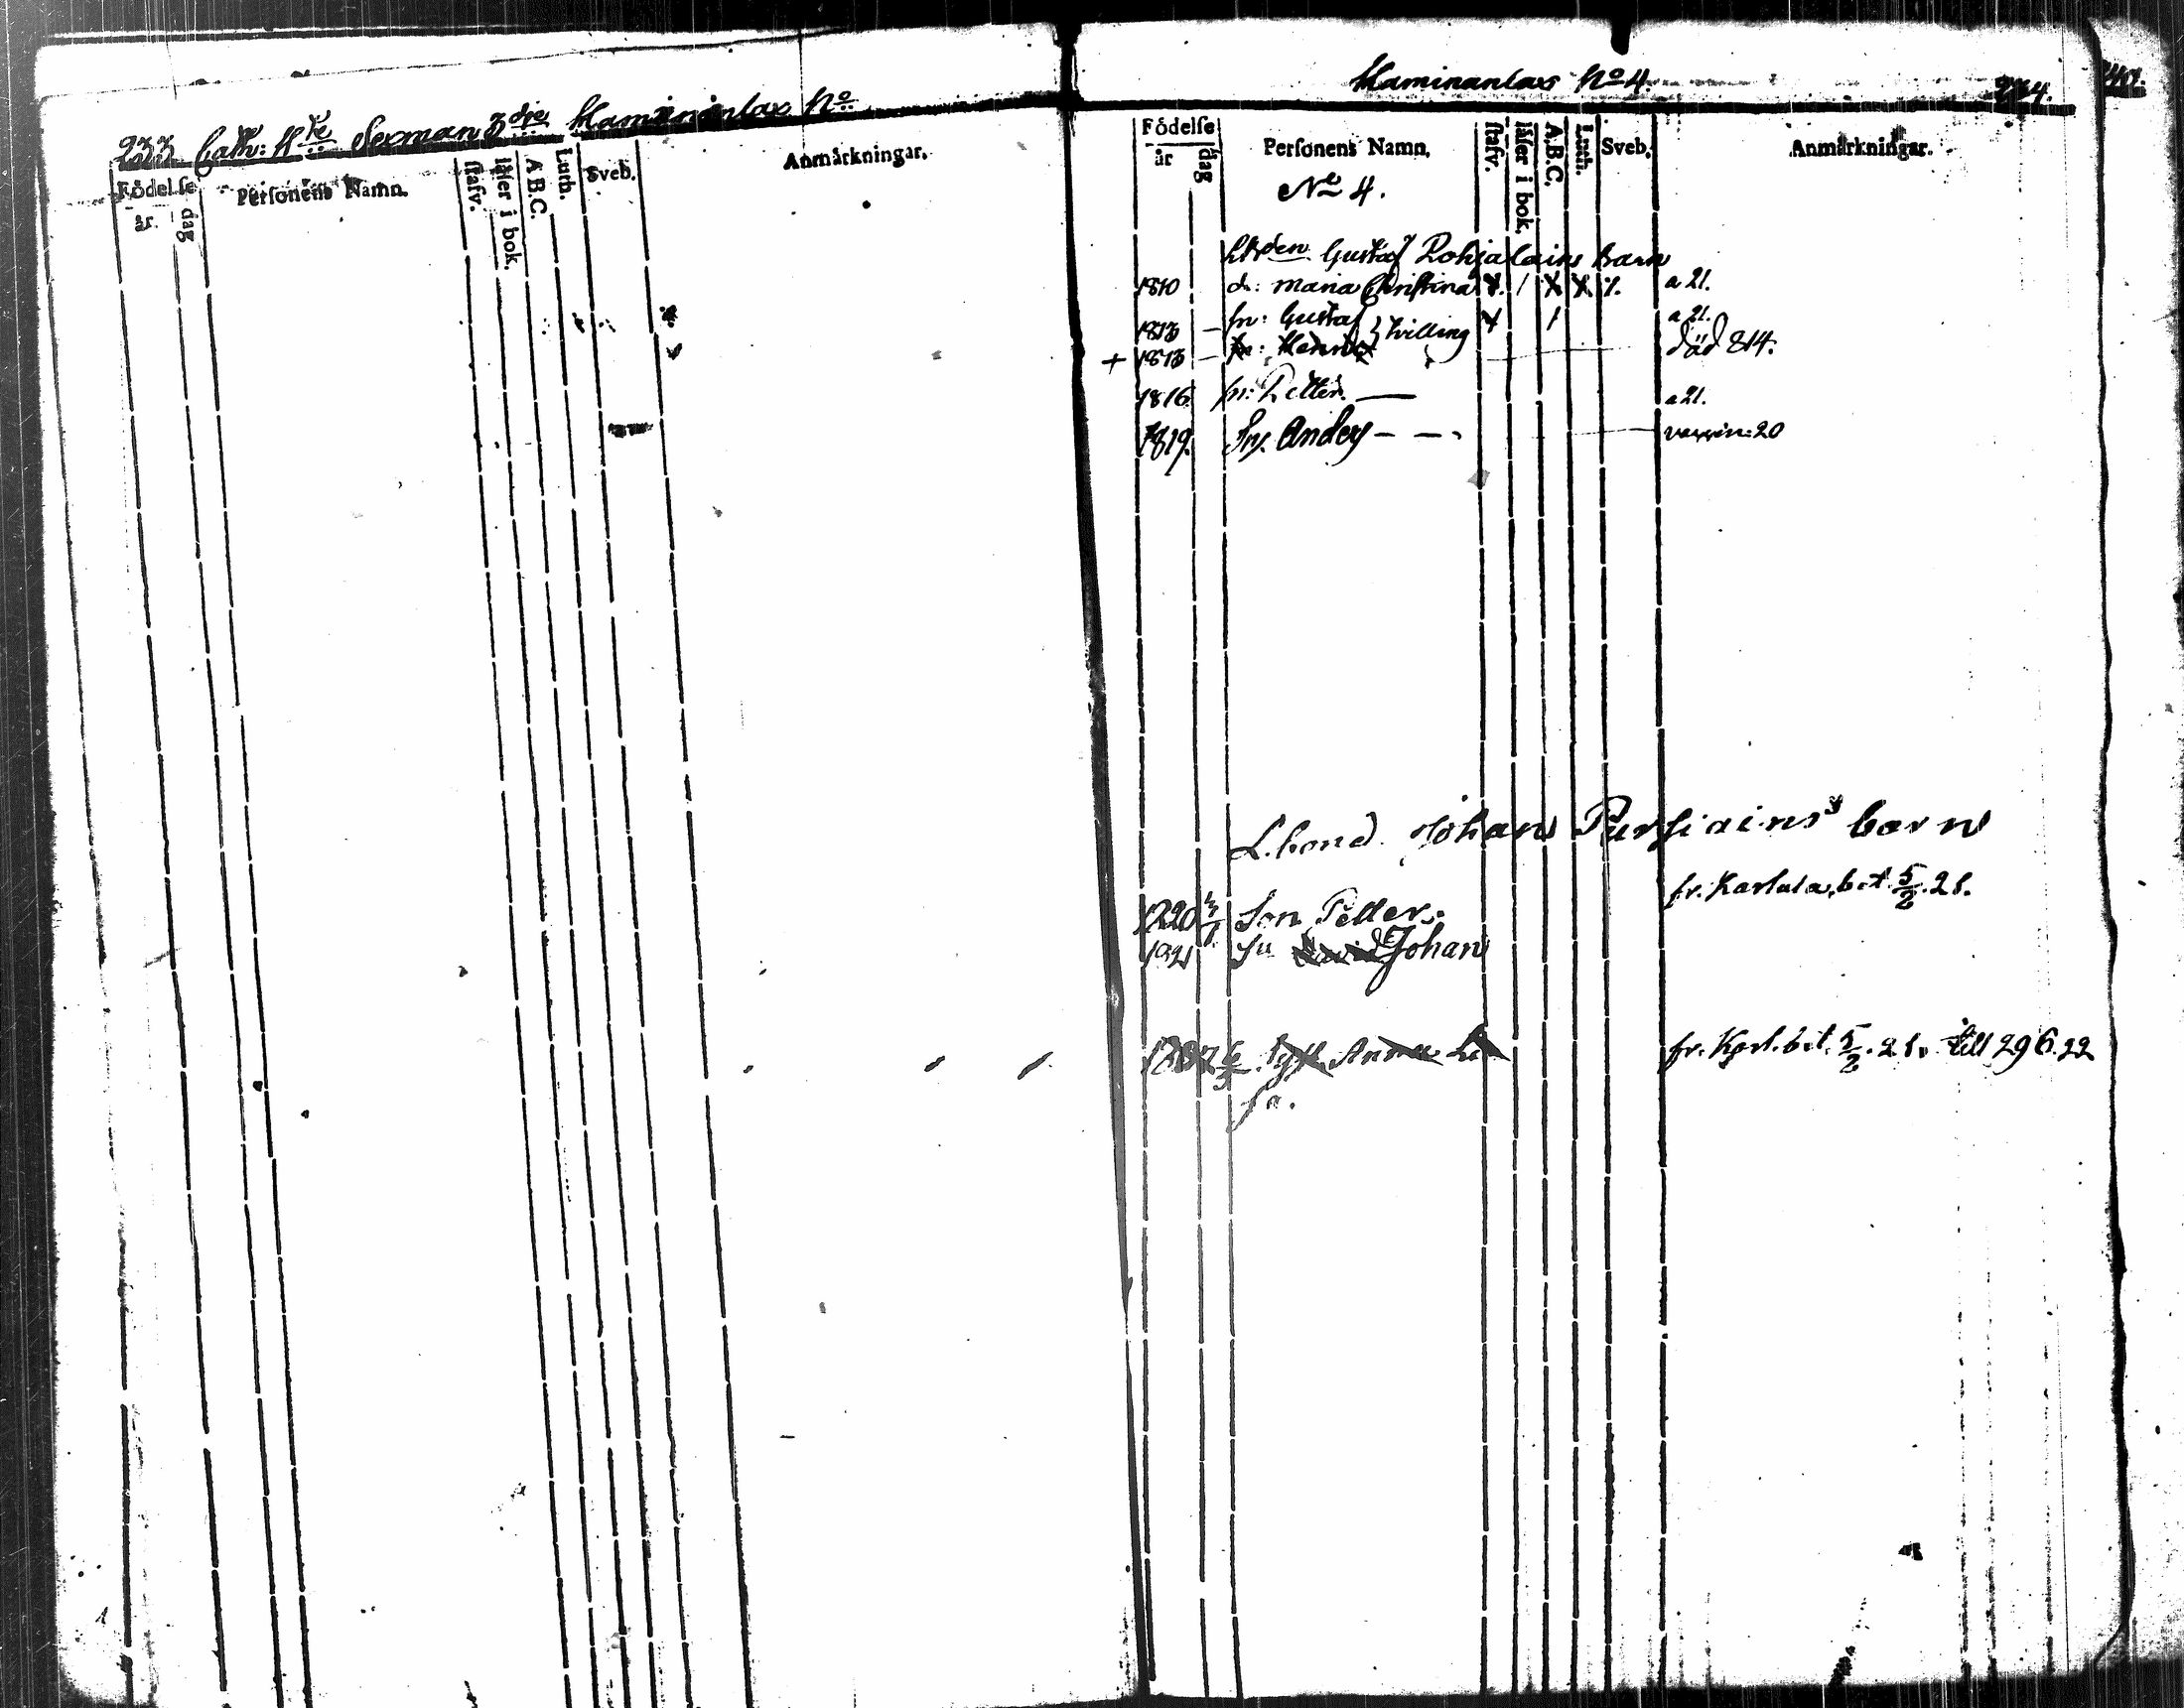 233 Cath: K Sexman 3die Haminanlax No
Födelse
år. dag Personens Namn. stafv. läser i bok. A.B.C. Luth. Sveb. Anmärkningar.
Haminanlax No 4. 234.
Födelse
år dag Personens Namn. stafv. läser i bok. A.B.C. Luth. Sveb. Anmärkningar.
No 4.
Gustaf Pohjalains Barn
1810 dr: Maria Christina a 21.
1813 - sn: Gustaf } tvilling a 21.
+ 1813 - sn: Henric död 814.
1816 sn: Petter. — a 21.
1819. Sn: Anders - - vaccin: 20
L.bond. Johan Pursiains barn
1820 Son Petter. fr. Kartula, bet. 5/2. 21.
1821 Sn Johan
1807 Anna Li fr. Kart. bet. 5/2. 21. till 296.22
sa.